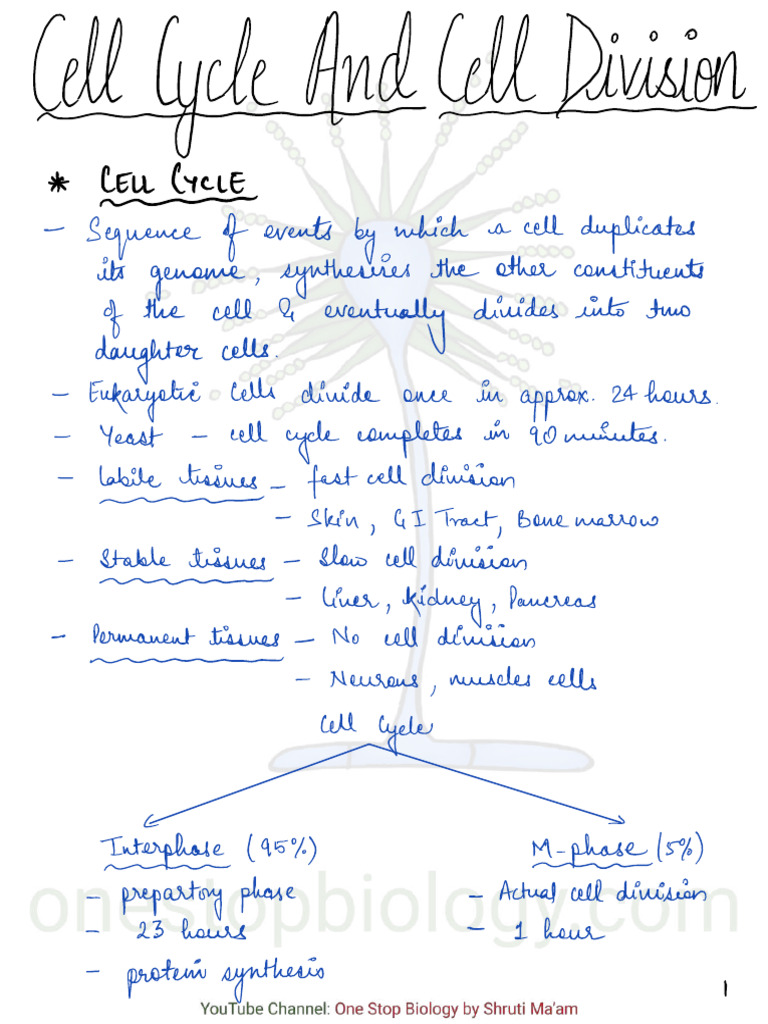 Cell Cycle And Cell Division
* CELL CYCLE
- Sequence of events by which a cell duplicates
its genome, synthesizes the other constituents
of the cell & eventually divides into two
daughter cells.
- Eukaryotic cells divide once in approx. 24 hours.
- Yeast - cell cycle completes in 90 minutes.
- Labile tissues - fast cell division
- Skin, GI Tract, Bone marrow
- Stable tissues - Slow cell division
- Liver, Kidney, Pancreas
- Permanent tissues - No cell division
- Neurons, muscles cells
Cell Cycle
Interphase (95%)
- prepartory phase
- 23 hours
- protein synthesis
M-phase (5%)
- Actual cell division
- 1 hour
onestopbiology.com
1
YouTube Channel: One Stop Biology by Shruti Ma'am